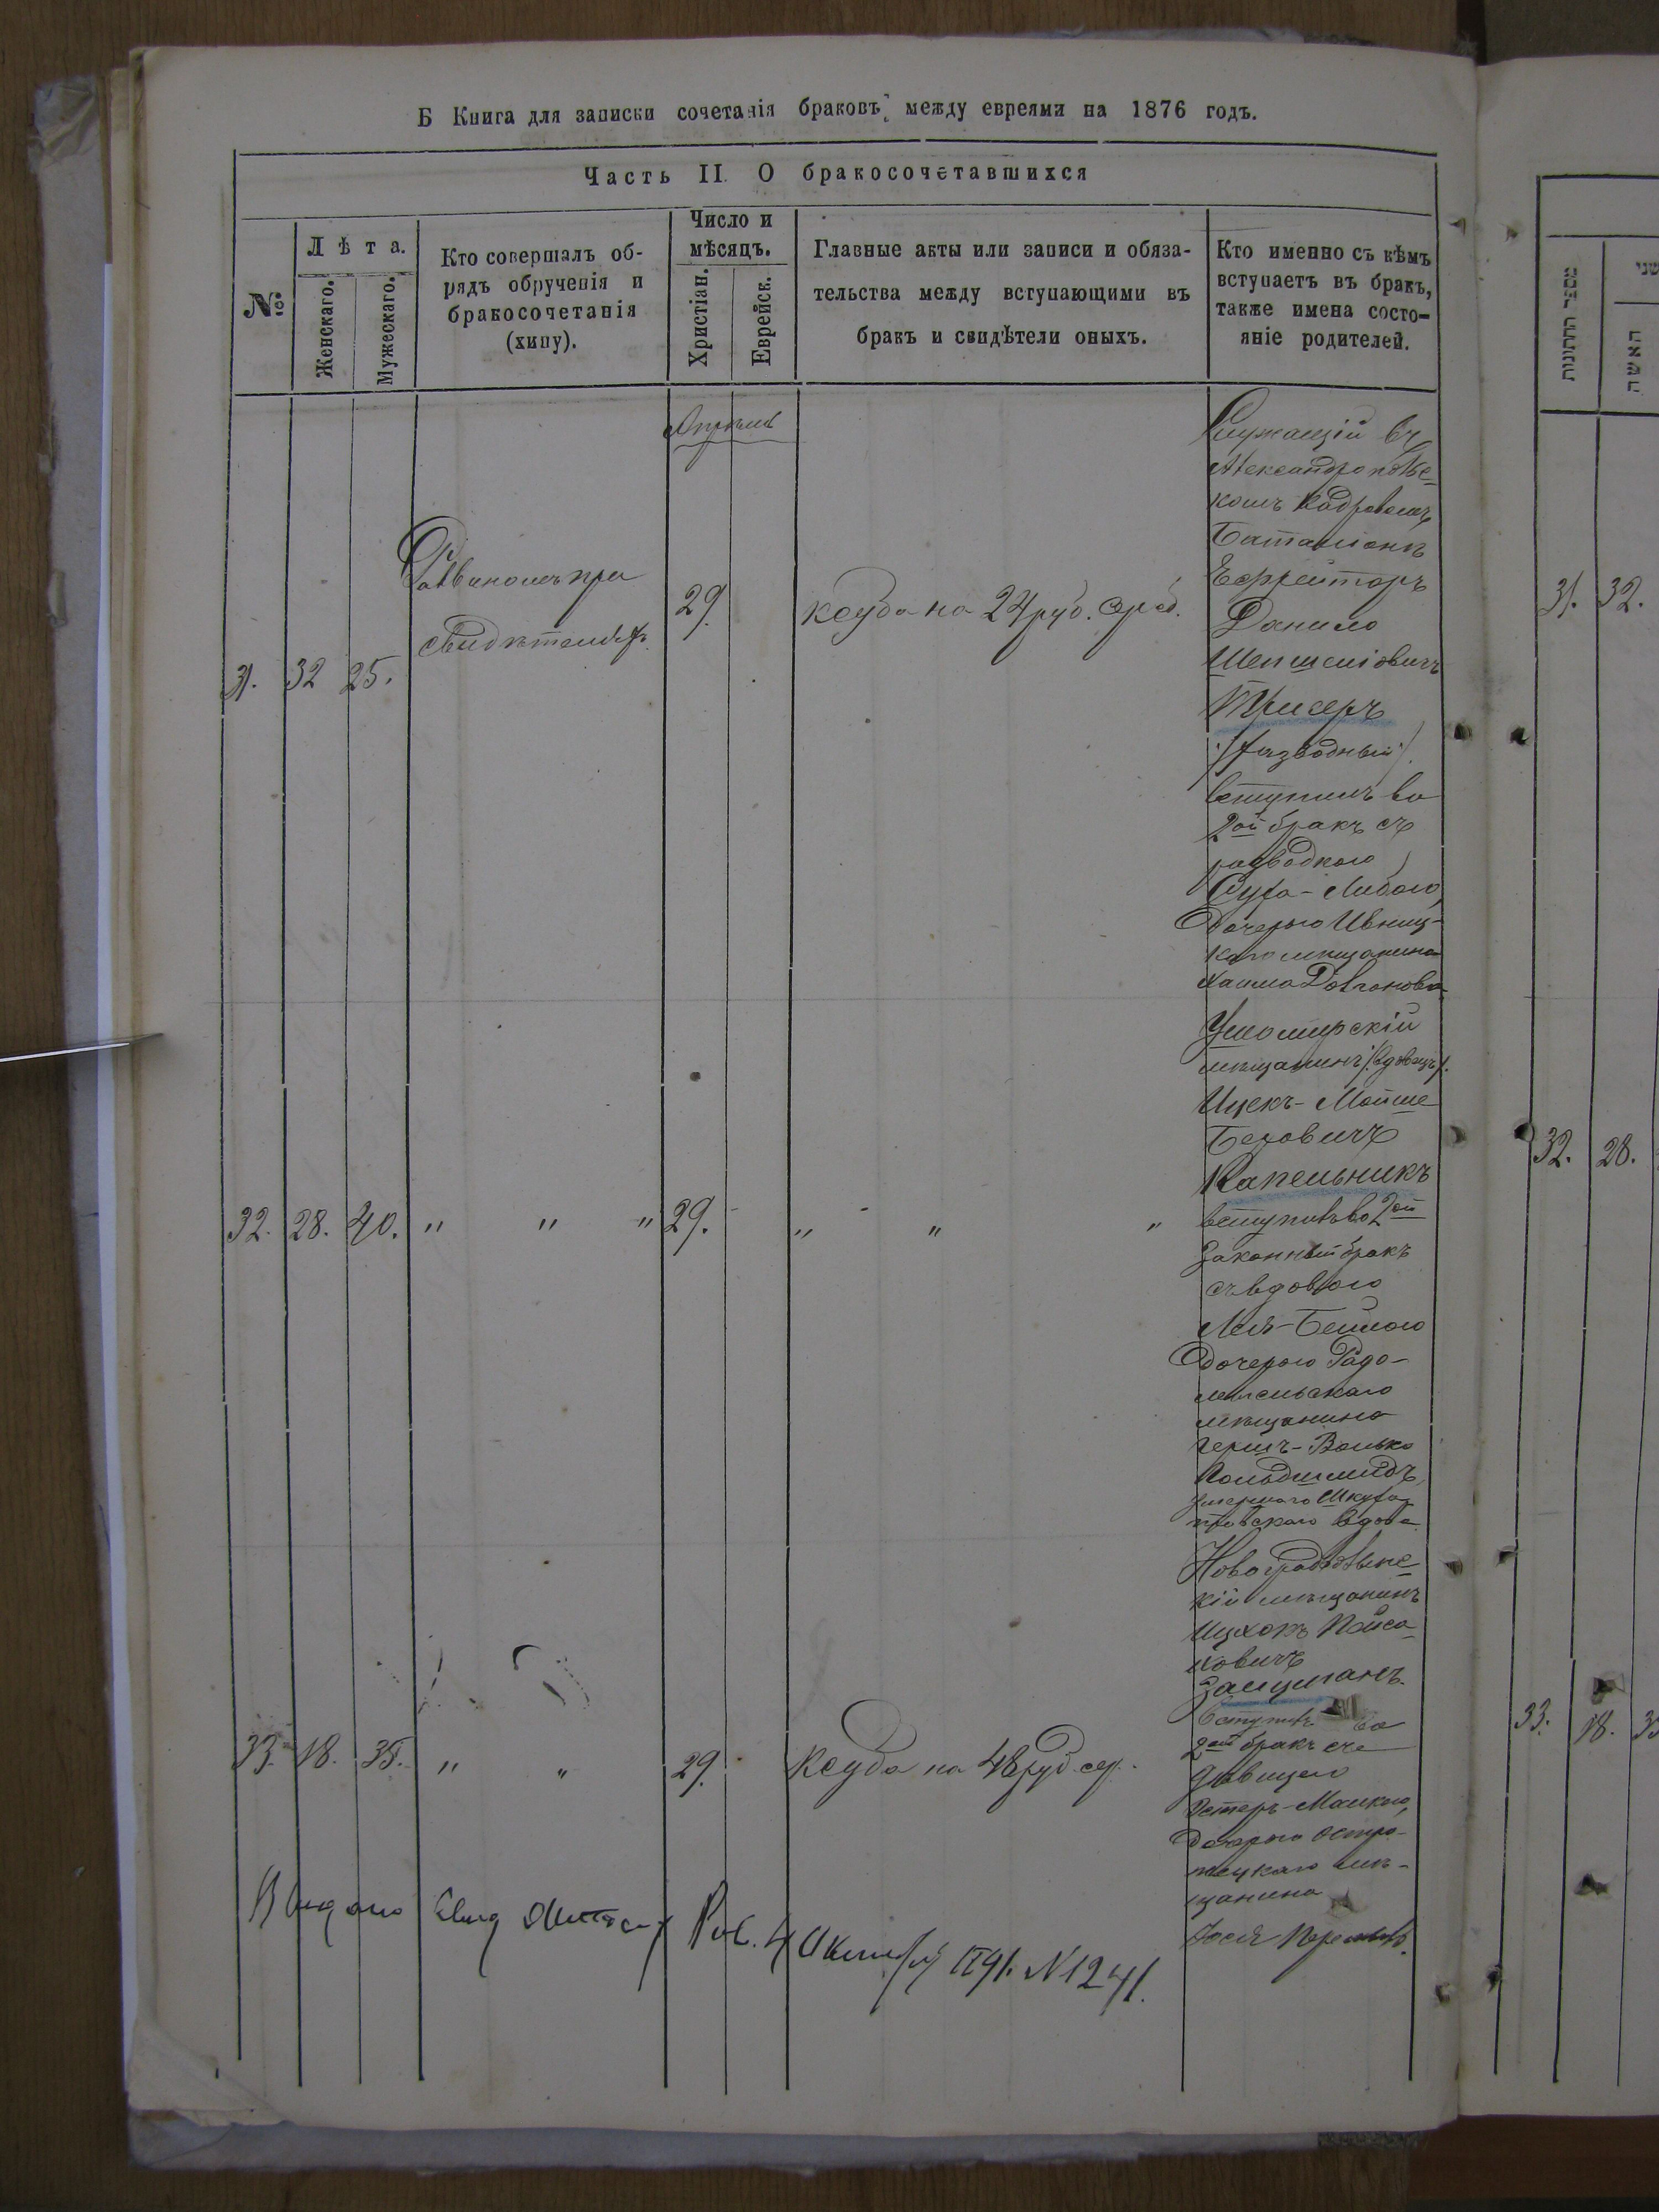 Б Книга для записки сочетанія браковъ между евреями на 1876 годъ.
Часть II О бракосочетавшихся
№
Лѣта.
Женскаго.
Мужескаго.
Кто совершалъ об-
рядъ обрученія и
бракосочетанія
(хипу).
Число и
мѣсяцъ.
Христіан.
Еврейск.
Главные акты или записи и обяза-
тельства между вступающими въ
бракъ и свидѣтели оныхъ.
Кто именно съ кѣмъ
вступаетъ въ бракъ,
также имена состо-
яніе родителей.
Апрѣль
31. 32 25.
Раввиномъ при
свидѣтеляхъ.
29.
ксуба на 24 руб. сереб.
Служащій въ
Александрополье-
комъ Кадровомъ
Баталіонѣ
Ефрейторъ
Данило
Шепшеліовичъ
Трисеръ
/разводный/
вступилъ во
2ой бракъ съ
разводкою
Сура-Либою,
дочерью Ивниц-
каго мѣщанина
Хаима
Ушомирскій
мѣщанинъ /вдовецъ/.
Ицекъ-Мойше
Беровичъ
Капельникъ
32. 28. 40. " " " 29. " " "
вступилъ во 2ой
законный бракъ
съ вдовою
Лея-Бейлою
дочерью Радо-
мысльскаго
мѣщанина
Гершъ-Волько
Гольдшмидъ,
умершаго
вдова
Новоградволынс-
кій мѣщанинъ
Ицхокъ Пейса-
ховичъ
Зайцманъ.
вступилъ во
2ой бракъ съ
дѣвицею
Эстеръ-Малкою,
дочерью Остро-
жецкаго мѣ-
щанина
33. 18. 35. " " 29.
ксуба на 48 руб. сер.
Выдано Свид
4 Октября 1891. N 1241.
מספר החתונות
האשה
שני
31. 32.
32. 28.
33. 18. 35